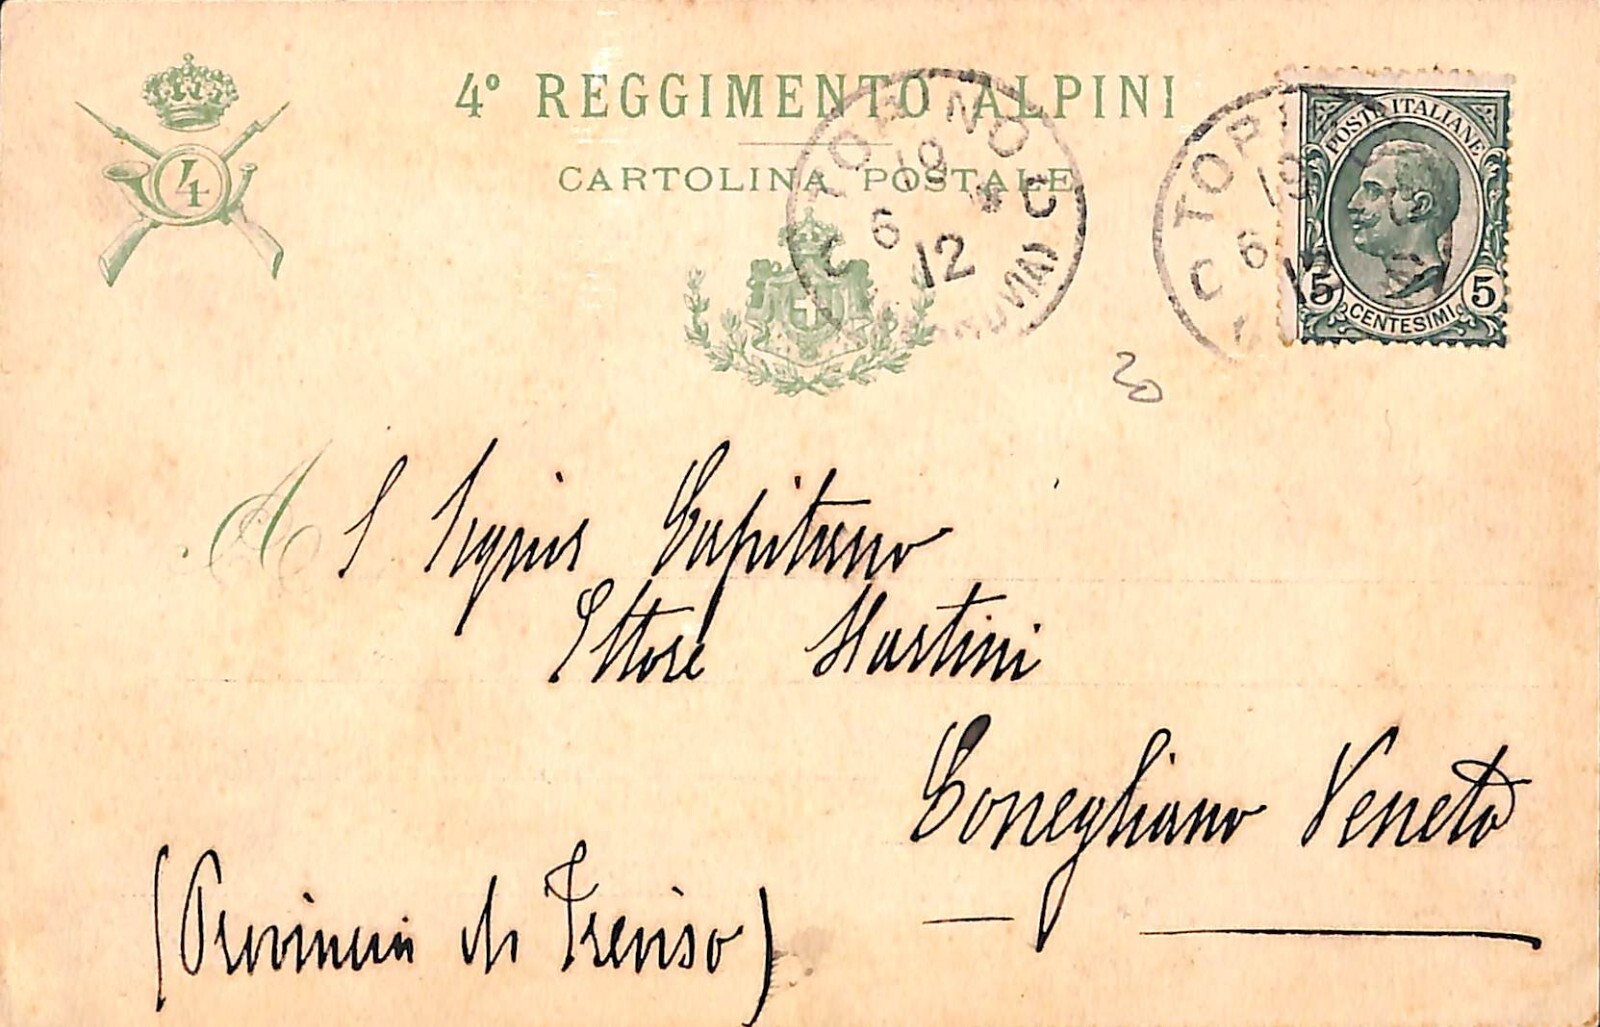 4º REGGIMENTO ALPINI
CARTOLINA POSTALE
4
TORINO
19
6
12
C
FERROVIA)
TOR
19
6
12
C
POSTE ITALIANE
5
5
CENTESIMI
30
A l Signor Capitano
Ettore Martini
Conegliano Veneto
(Provincia di Treviso)